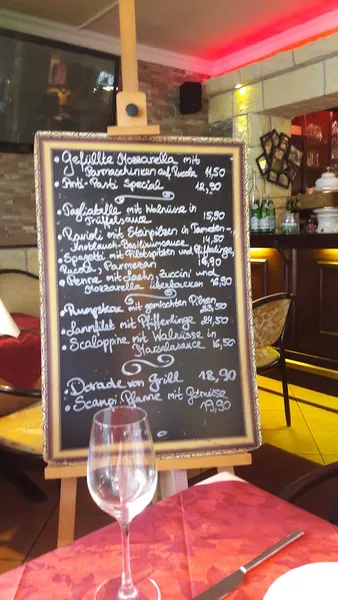 • Gefüllte Mozzarella mit
Parmaschinken auf Rucola 11,50
• Anti-Pasti Special 12,90
• Tagliatelle mit Walnüsse in
Trüffelsauce 15,90
• Ravioli mit Steinpilzen in Tomaten-
Knoblauch-Basilikumsauce 14,50
• Spagetti mit Filetspitzen und Pfifferlinge,
Rucola, Parmesan 16,90
• Penne mit Lachs, Zuccini und
Mozzarella überbacken 16,90
• Rumpsteak mit gemischten Pilzen
23,50
• Lammfilet mit Pfifferlinge 24,50
• Scaloppine mit Walnüsse in
Marsalasauce 16,50
• Dorade vom Grill 18,90
• Scampi Pfanne mit Gemüse
19,90